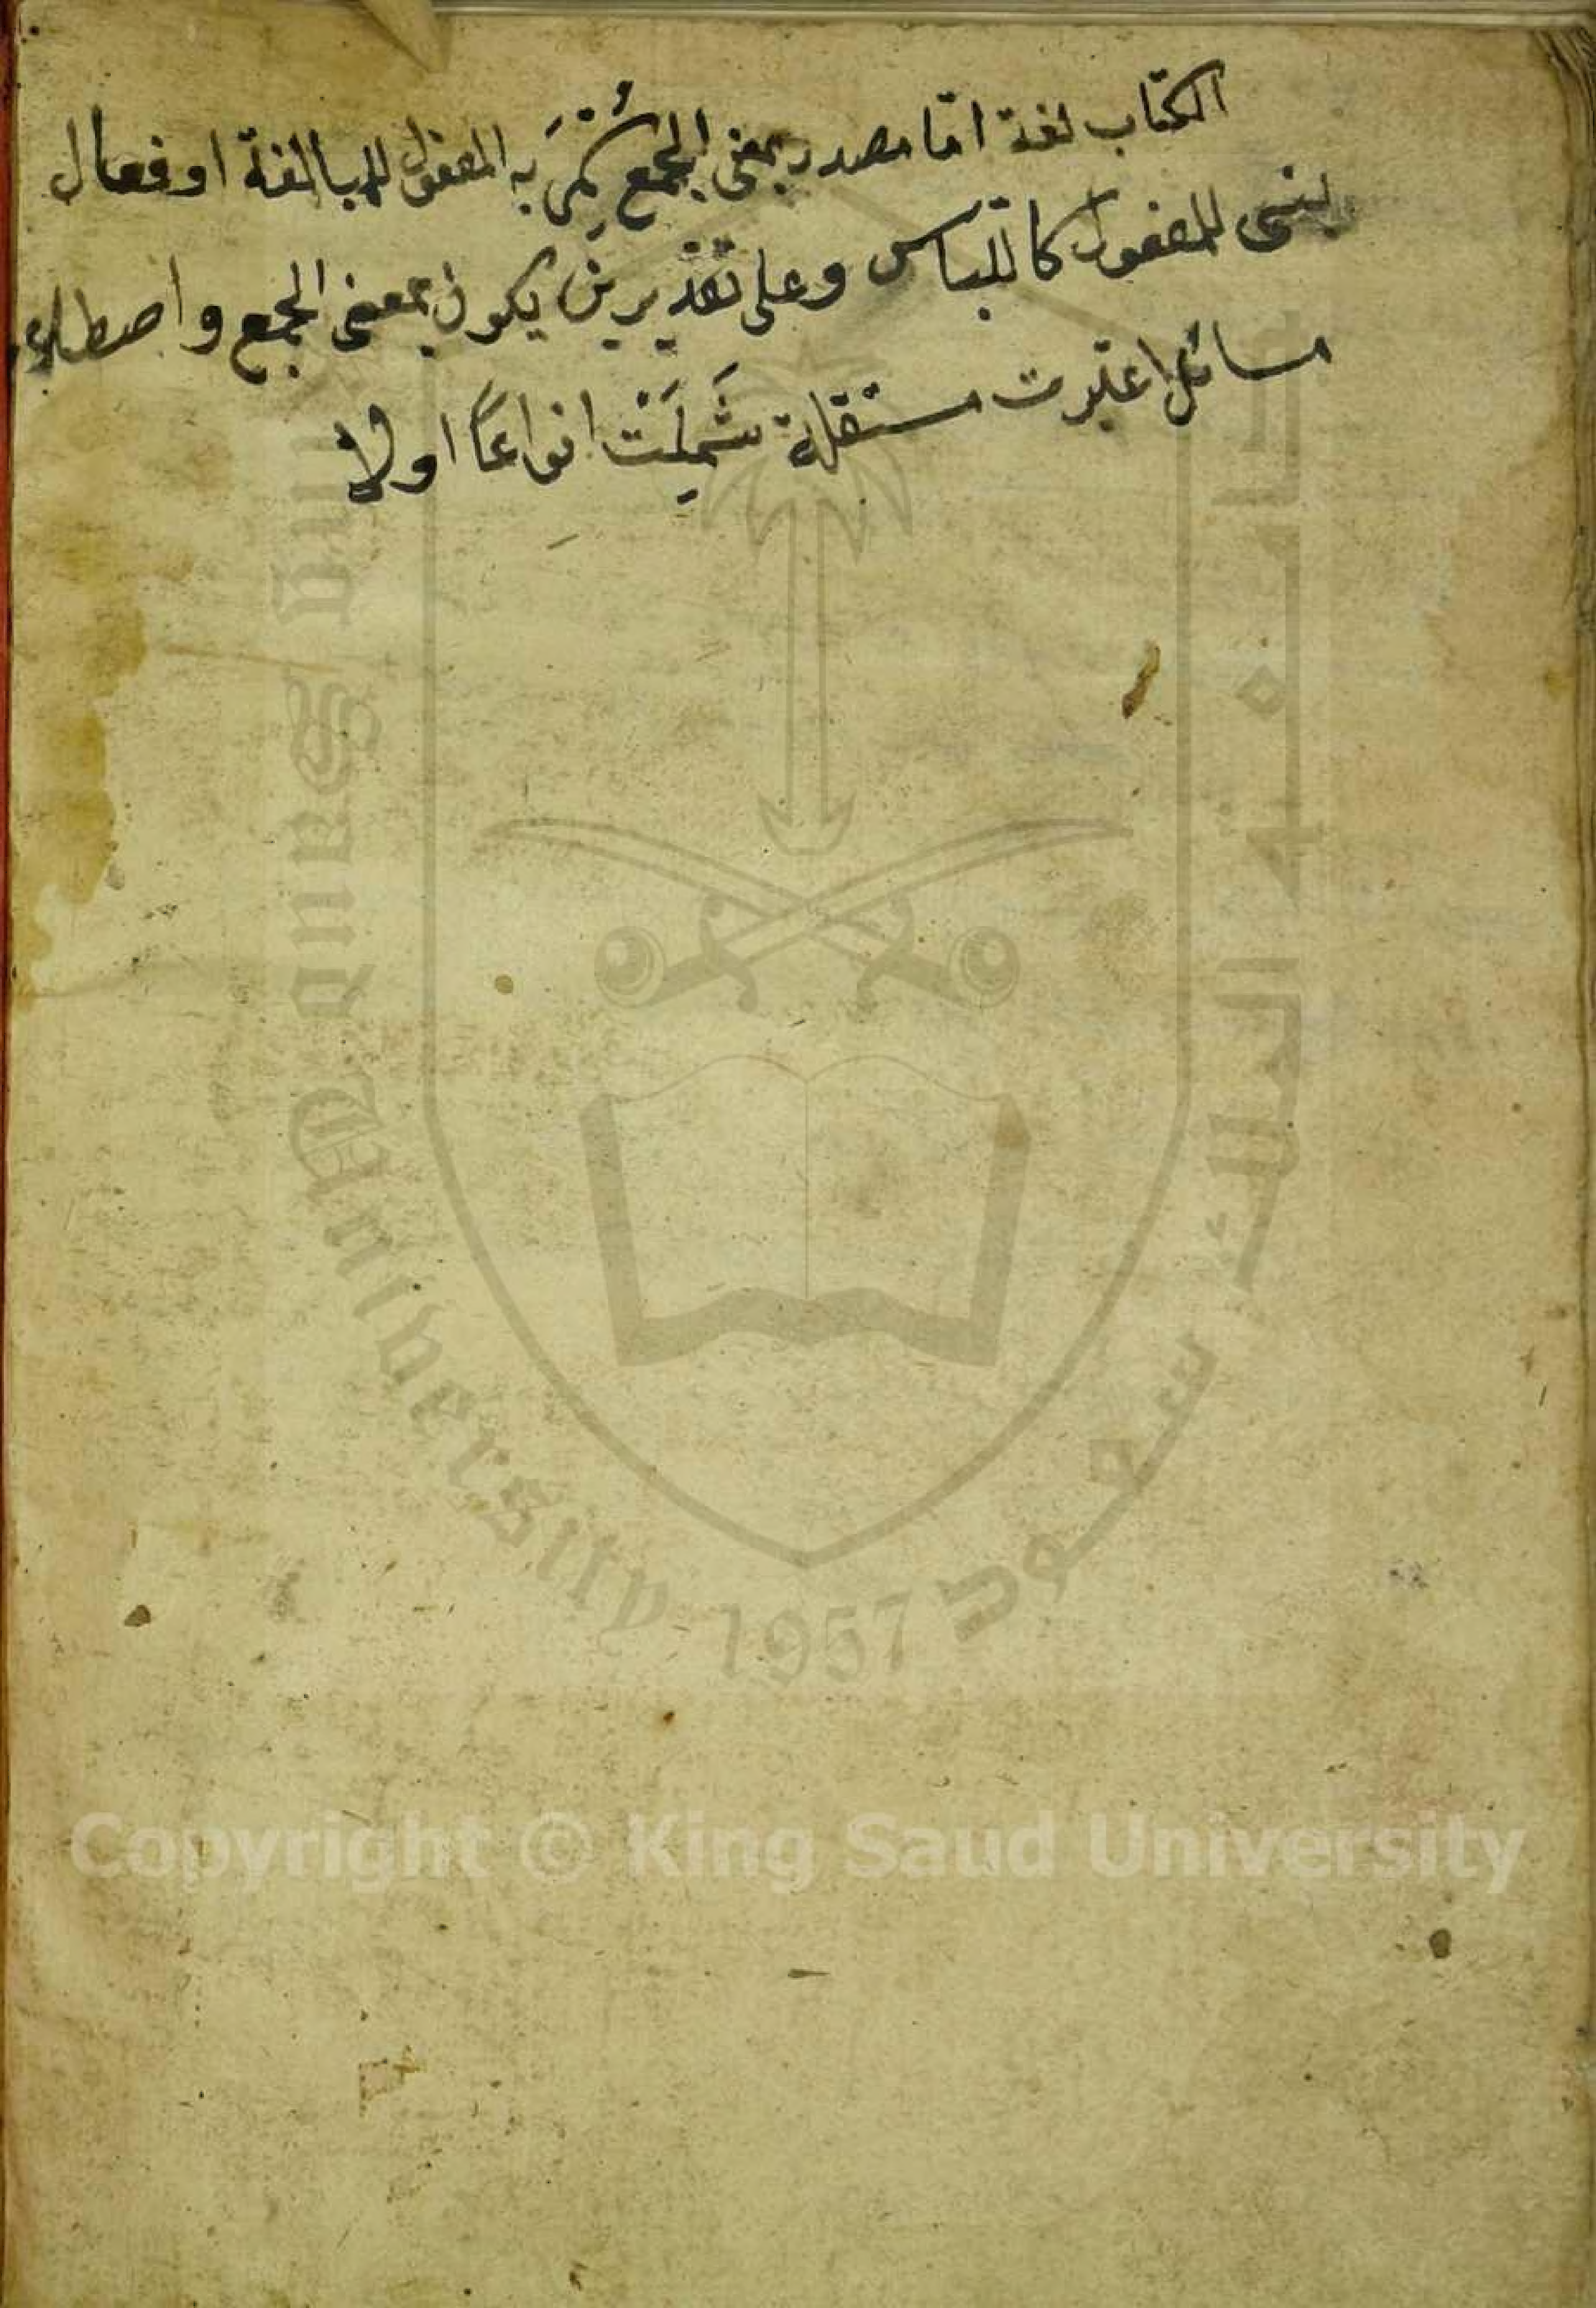 الكتاب لغة امّا مصدر بمعنى الجمع سُمّيَ به المفعول للمبالغة او فعال
بنى للمفعول كاللباس وعلى تقديرين يكون بمعنى الجمع واصطلاحا
مسائل اعتبرت مستقلة شَمِلَتْ انواعًا اولا
Copyright © King Saud University
King Saud University 1957
جامعة الملك سعود